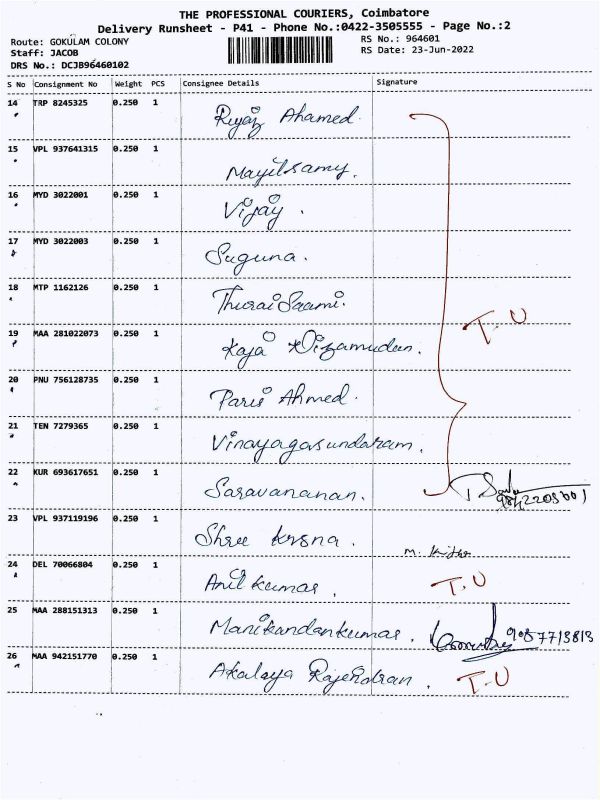 THE PROFESSIONAL COURIERS, Coimbatore
Delivery Runsheet - P41 - Phone No.:0422-3505555 - Page No.:2
Route: GOKULAM COLONY
RS No.: 964601
Staff: JACOB
RS Date: 23-Jun-2022
DRS No.: DCJB96460102
S No Consignment No Weight PCS Consignee Details Signature
14 TRP 8245325 0.250 1 Riyaz Ahamed
15 VPL 937641315 0.250 1 Mayilsamy.
16 MYD 3022001 0.250 1 Vijay.
17 MYD 3022003 0.250 1 Suguna.
18 MTP 1162126 0.250 1 ThuraiSaami.
T.U
19 MAA 281022073 0.250 1 Kaja Nizamudeen.
20 PNU 756128735 0.250 1 Paris Ahmed.
21 TEN 7279365 0.250 1 Vinayagasundaram.
22 KUR 693617651 0.250 1 Saravananan.
23 VPL 937119196 0.250 1 Shree Krsna.
24 DEL 70066804 0.250 1 Anil kumar. T.U
25 MAA 288151313 0.250 1 Manikandankumar.
26 MAA 942151770 0.250 1 Akalaya Rajendran. T.U